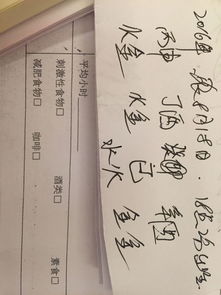 2016年 农8月18日. 18点24分出生.
丙申 丁酉 癸卯 辛酉
水金 水金 水火 金金
平均小时
刺激性食物□ 酒类□
减肥食物□ 咖啡□ 素食□